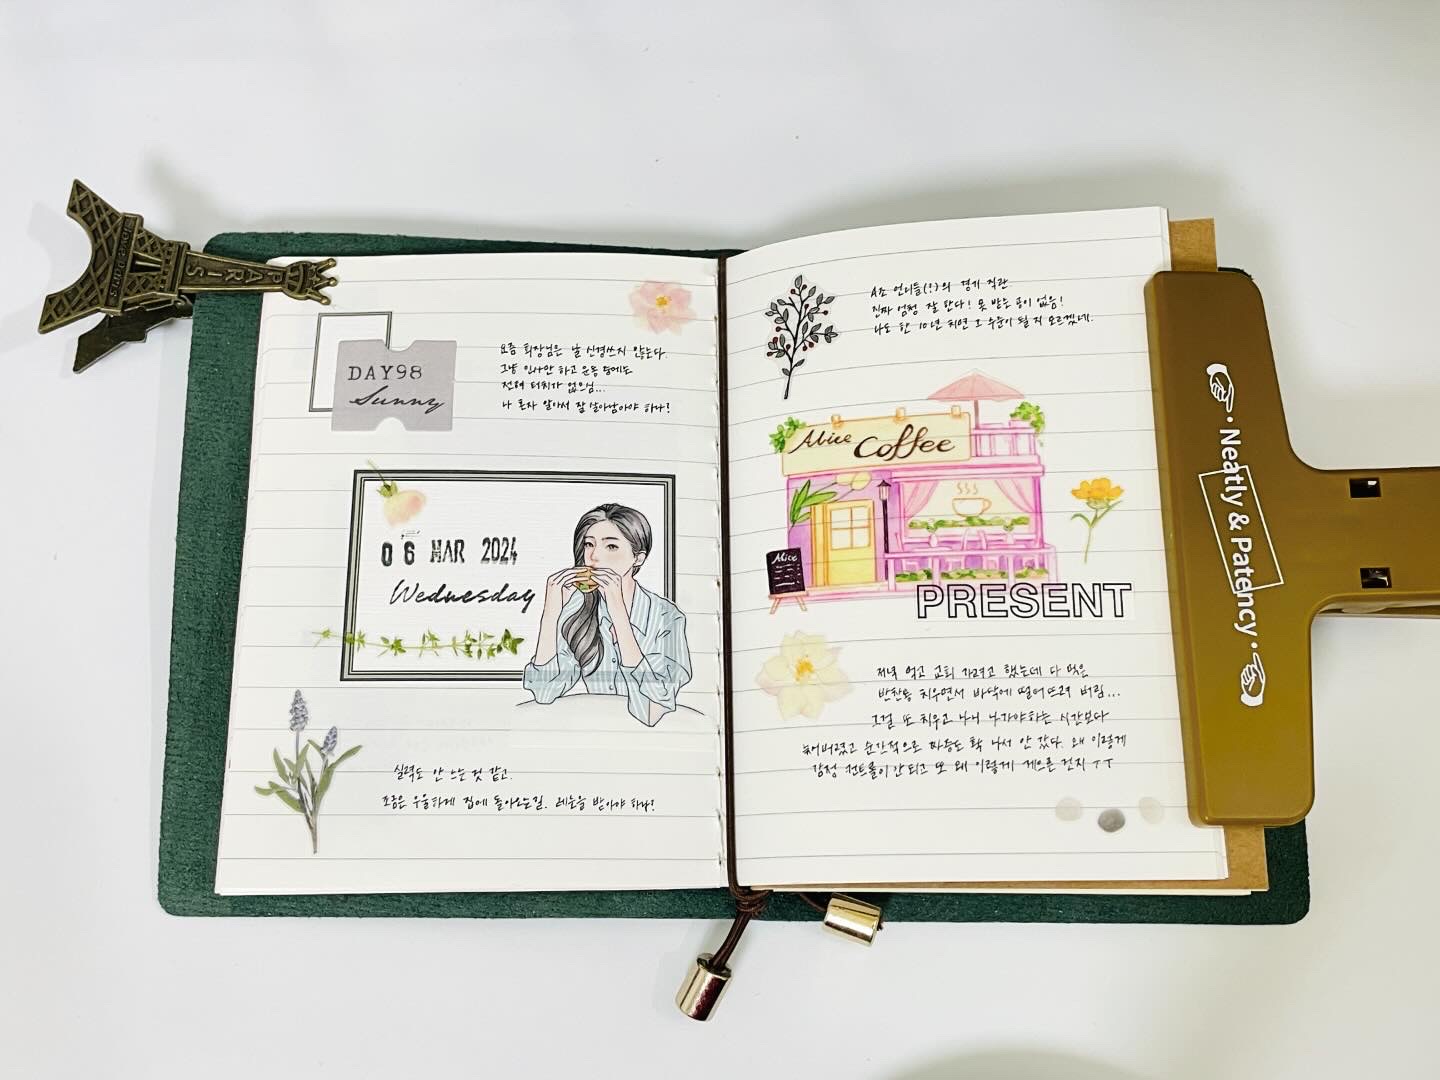 PARIS
DAY98
Sunny
요즘 회장님은 날 신경쓰지 않는다.
그냥 인사만 하고 운동 중에는
전혀 터치가 없으심...
나 혼자 알아서 잘 살아남아야 하나?
06 MAR 2024
Wednesday
실력도 안 느는 것 같고.
조금은 우울하게 집에 돌아오는길. 레슨을 받아야 하나?
A조 언니들(?)의 경기 직관
진짜 엄청 잘 한다! 못 받는 공이 없음!
나도 한 10년 치면 그 수준이 될 지 모르겠네.
Alice Coffee
Alice
PRESENT
저녁 먹고 교회 가려고 했는데 다 먹은
반찬통 치우면서 바닥에 떨어뜨려 버림...
그걸 또 치우고 나니 나가야하는 시간보다
늦어버렸고 순간적으로 짜증도 확 나서 안 갔다. 왜 이렇게
감정 컨트롤이 안되고 또 왜 이렇게 게으른 건지 ㅜㅜ
Neatly & Patency